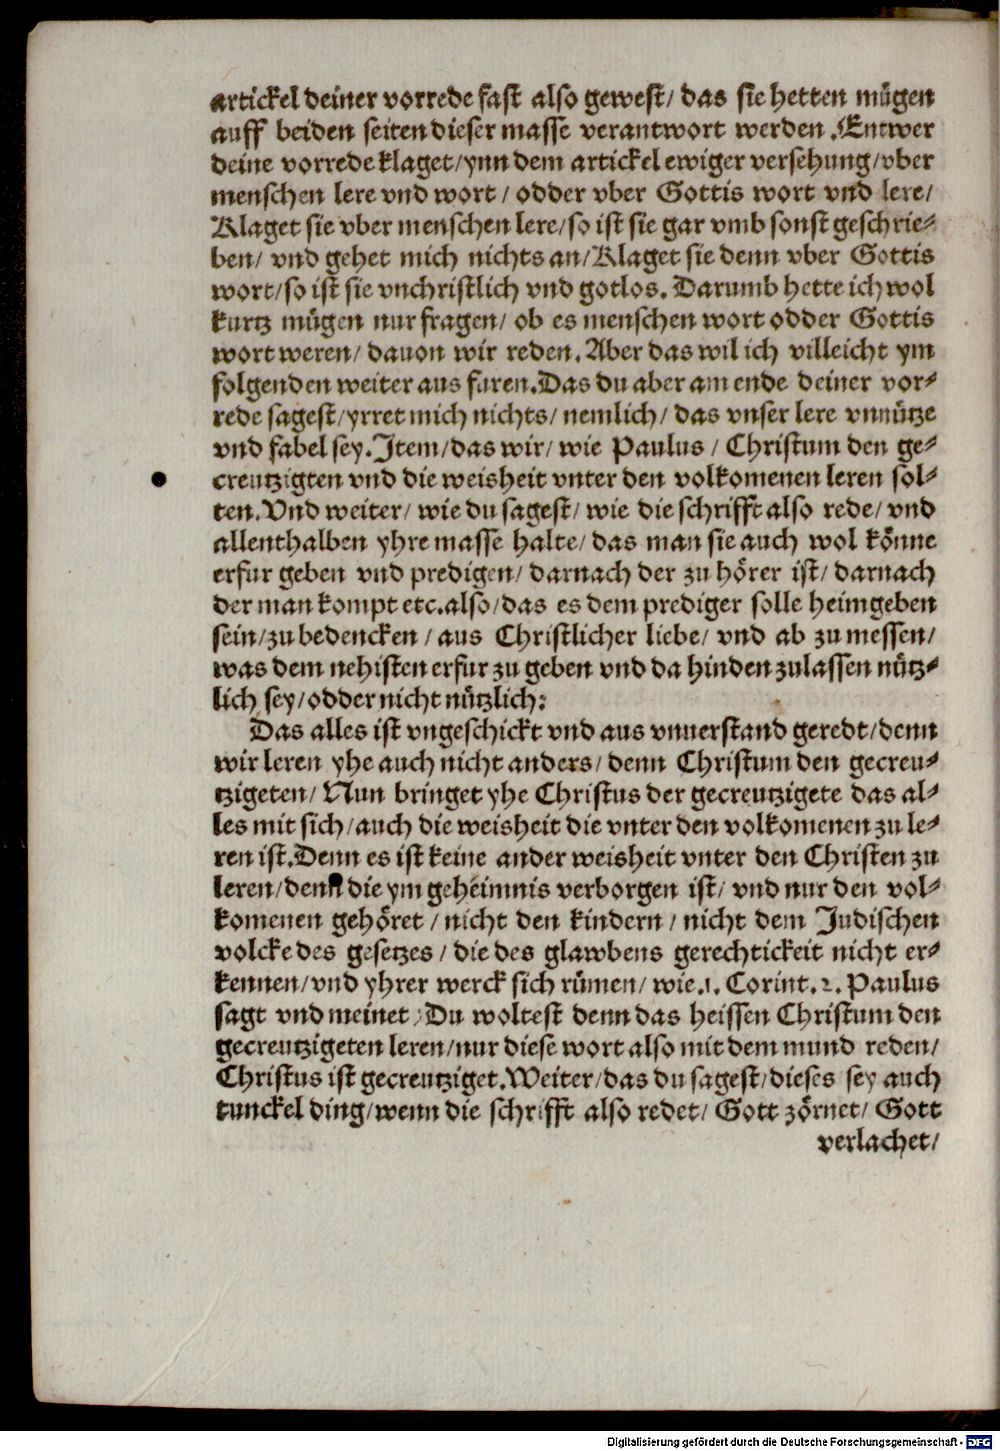 artickel deiner vorrede fast also gewest/ das sie hetten mügen
auff beiden seiten dieser masse verantwort werden. Entwer
deine vorrede klaget/ ynn dem artickel ewiger versehung/ vber
menschen lere vnd wort/ odder vber Gottis wort vnd lere/
Klaget sie vber menschen lere/ so ist sie gar vmb sonst geschrie-
ben/ vnd gehet mich nichts an/ Klaget sie denn vber Gottis
wort/ so ist sie vnchristlich vnd gotlos. Darumb hette ich wol
kurtz mügen nur fragen/ ob es menschen wort odder Gottis
wort weren/ dauon wir reden. Aber das wil ich villeicht ym
folgenden weiter aus furen. Das du aber am ende deiner vor-
rede sagest/ yrret mich nichts/ nemlich/ das vnser lere vnnütze
vnd fabel sey. Item/ das wir/ wie Paulus/ Christum den ge-
creutzigten vnd die weisheit vnter den volkomenen leren sol-
ten. Vnd weiter/ wie du sagest/ wie die schrifft also rede/ vnd
allenthalben yhre masse halte/ das man sie auch wol könne
erfur geben vnd predigen/ darnach der zu hörer ist/ darnach
der man kompt etc. also/ das es dem prediger solle heimgeben
sein/ zu bedencken/ aus Christlicher liebe/ vnd ab zu messen/
was dem nehisten erfur zu geben vnd da hinden zulassen nütz-
lich sey/ odder nicht nützlich:
Das alles ist vngeschickt vnd aus vnuerstand geredt/ denn
wir leren yhe auch nicht anders/ denn Christum den gecreu-
tzigeten/ Nun bringet yhe Christus der gecreutzigete das al-
les mit sich/ auch die weisheit die vnter den volkomenen zu le-
ren ist. Denn es ist keine ander weisheit vnter den Christen zu
leren/ denn die ym geheimnis verborgen ist/ vnd nur den vol-
komenen gehöret/ nicht den kindern/ nicht dem Judischen
volcke des gesetzes/ die des glawbens gerechtickeit nicht er-
kennen/ vnd yhrer werck sich rümen/ wie .1. Corint. 2. Paulus
sagt vnd meinet/ Du woltest denn das heissen Christum den
gecreutzigeten leren/ nur diese wort also mit dem mund reden/
Christus ist gecreutziget. Weiter/ das du sagest/ dieses sey auch
tunckel ding/ wenn die schrifft also redet/ Gott zörnet/ Gott
verlachet/
Digitalisierung gefördert durch die Deutsche Forschungsgemeinschaft - DFG